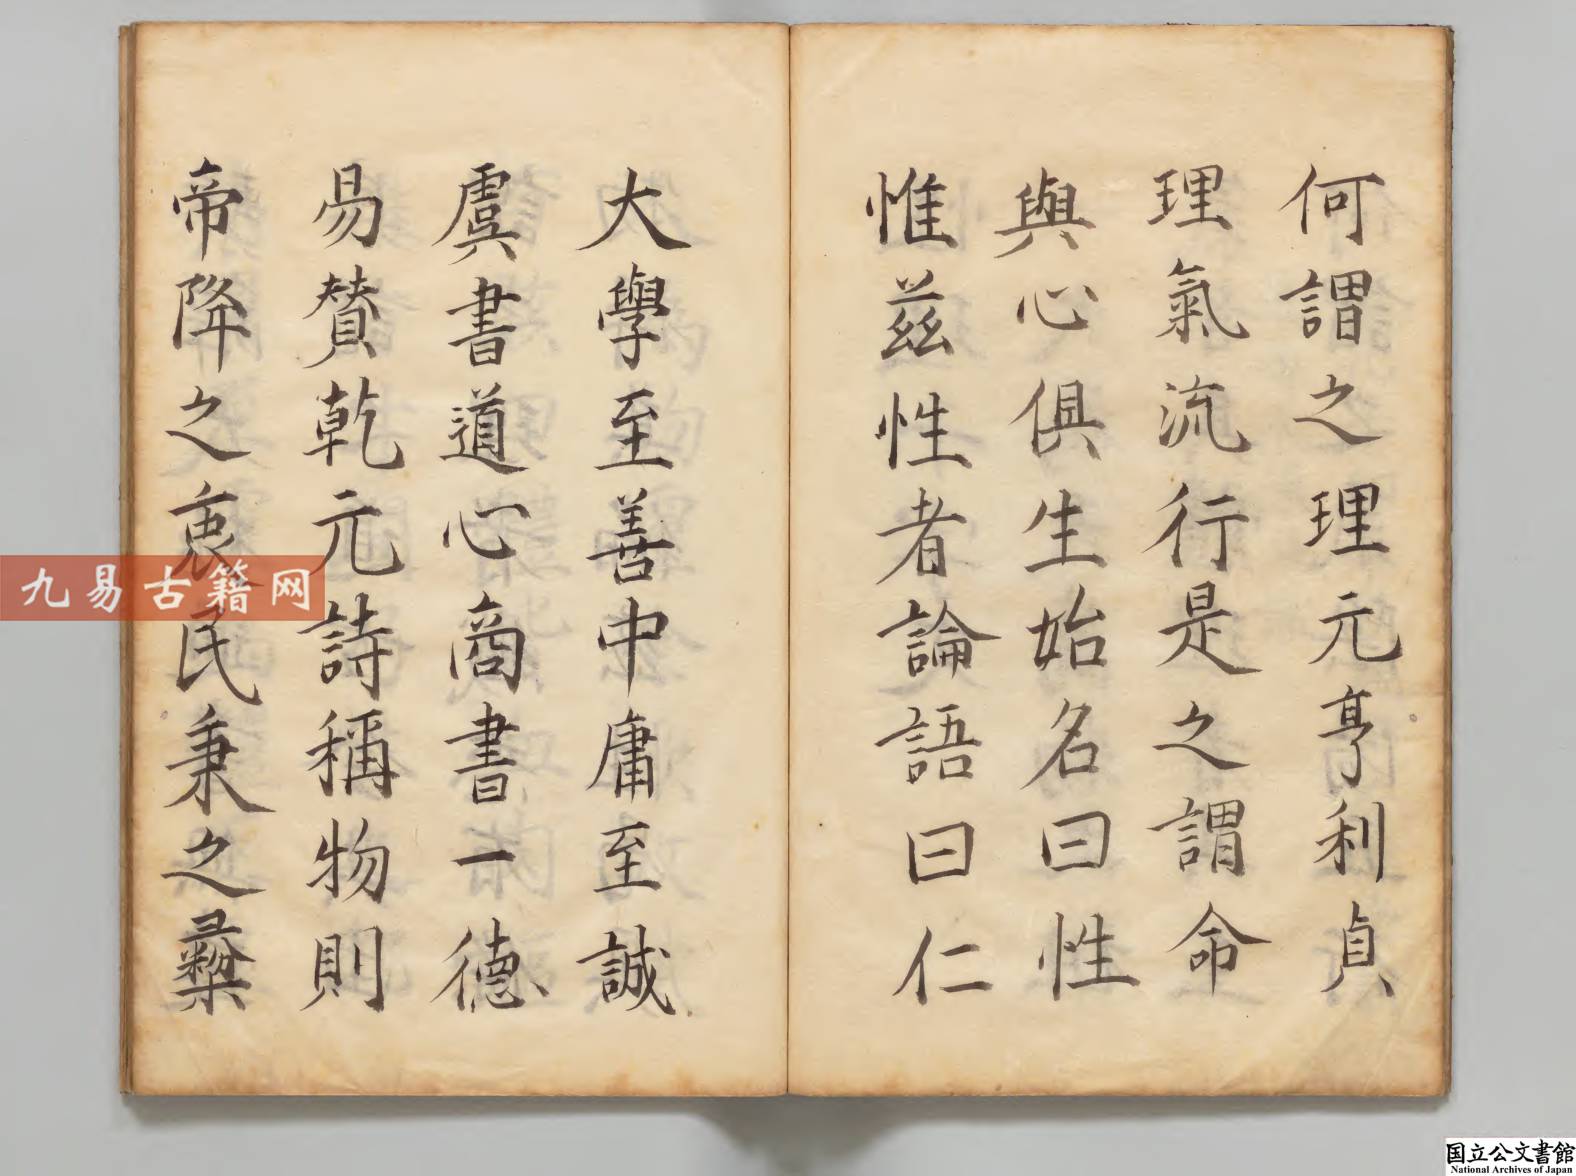 何謂之理元亨利貞
理氣流行是之謂命
與心俱生始名曰性
惟茲性者論語曰仁
大學至善中庸至誠
虞書道心商書一德
易贊乾元詩稱物則
帝降之衷民秉之彛
九易古籍网
国立公文書館
National Archives of Japan